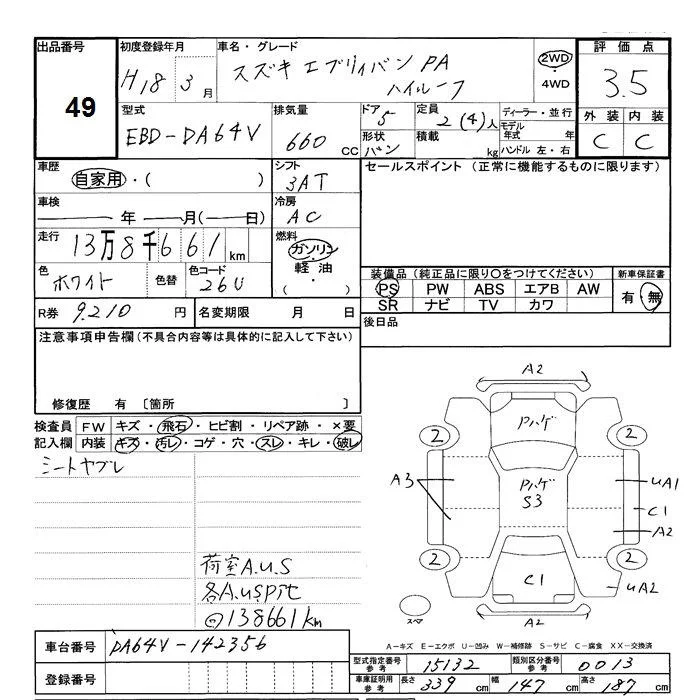 出品番号 初度登録年月 車名・グレード 評価点
49
H18 3月
スズキ エブリィバン PA
ハイルーフ
2WD
・
4WD
3.5
型式 排気量 ドア 定員 ディーラー・並行
EBD-DA64V 660 CC 5 2(4)人 モデル年式 年
形状 バン 積載 kg ハンドル 左・右
外装 内装
C C
車歴 自家用・( )
シフト 3AT
セールスポイント (正常に機能するものに限ります)
車検 年 月(ー日)
冷房 AC
走行 13万8千661km
燃料 ガソリン
軽油・
( )
色 ホワイト 色替 色コード 26U
装備品(純正品に限り○をつけてください) 新車保証書
PS PW ABS エアB AW 有・無
SR ナビ TV カワ
R券 9,210 円 名変期限 月 日
後日品
注意事項申告欄(不具合内容等は具体的に記入して下さい)
修復歴 有 〔箇所 〕
検査員 FW キズ・飛石・ヒビ割・リペア跡・×要
記入欄 内装 キズ・汚レ・コゲ・穴・スレ・キレ・破レ
シートヤブレ
荷室A.U.S
各A.U.S Pit
138661km
A2
Pハゲ
2 2
A3 Pハゲ S3 UA1
C1
A2
2 2
C1 UA2
スペア
A2
A-キズ E-エクボ U-凹み W-補修跡 S-サビ C-腐食 XX-交換済
車台番号 DA64V-142356
登録番号
型式指定番号 参考 15132 類別区分番号 参考 0013
車庫証明用 参考 長さ 339 cm 幅 147 cm 高さ 187 cm